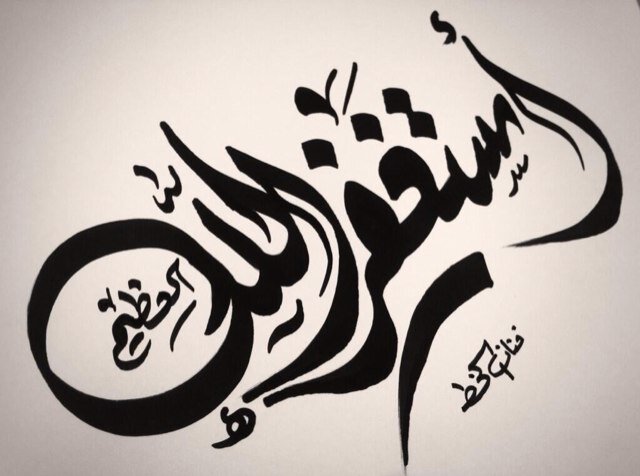 أستغفر الله
العظيم
فنان الخط